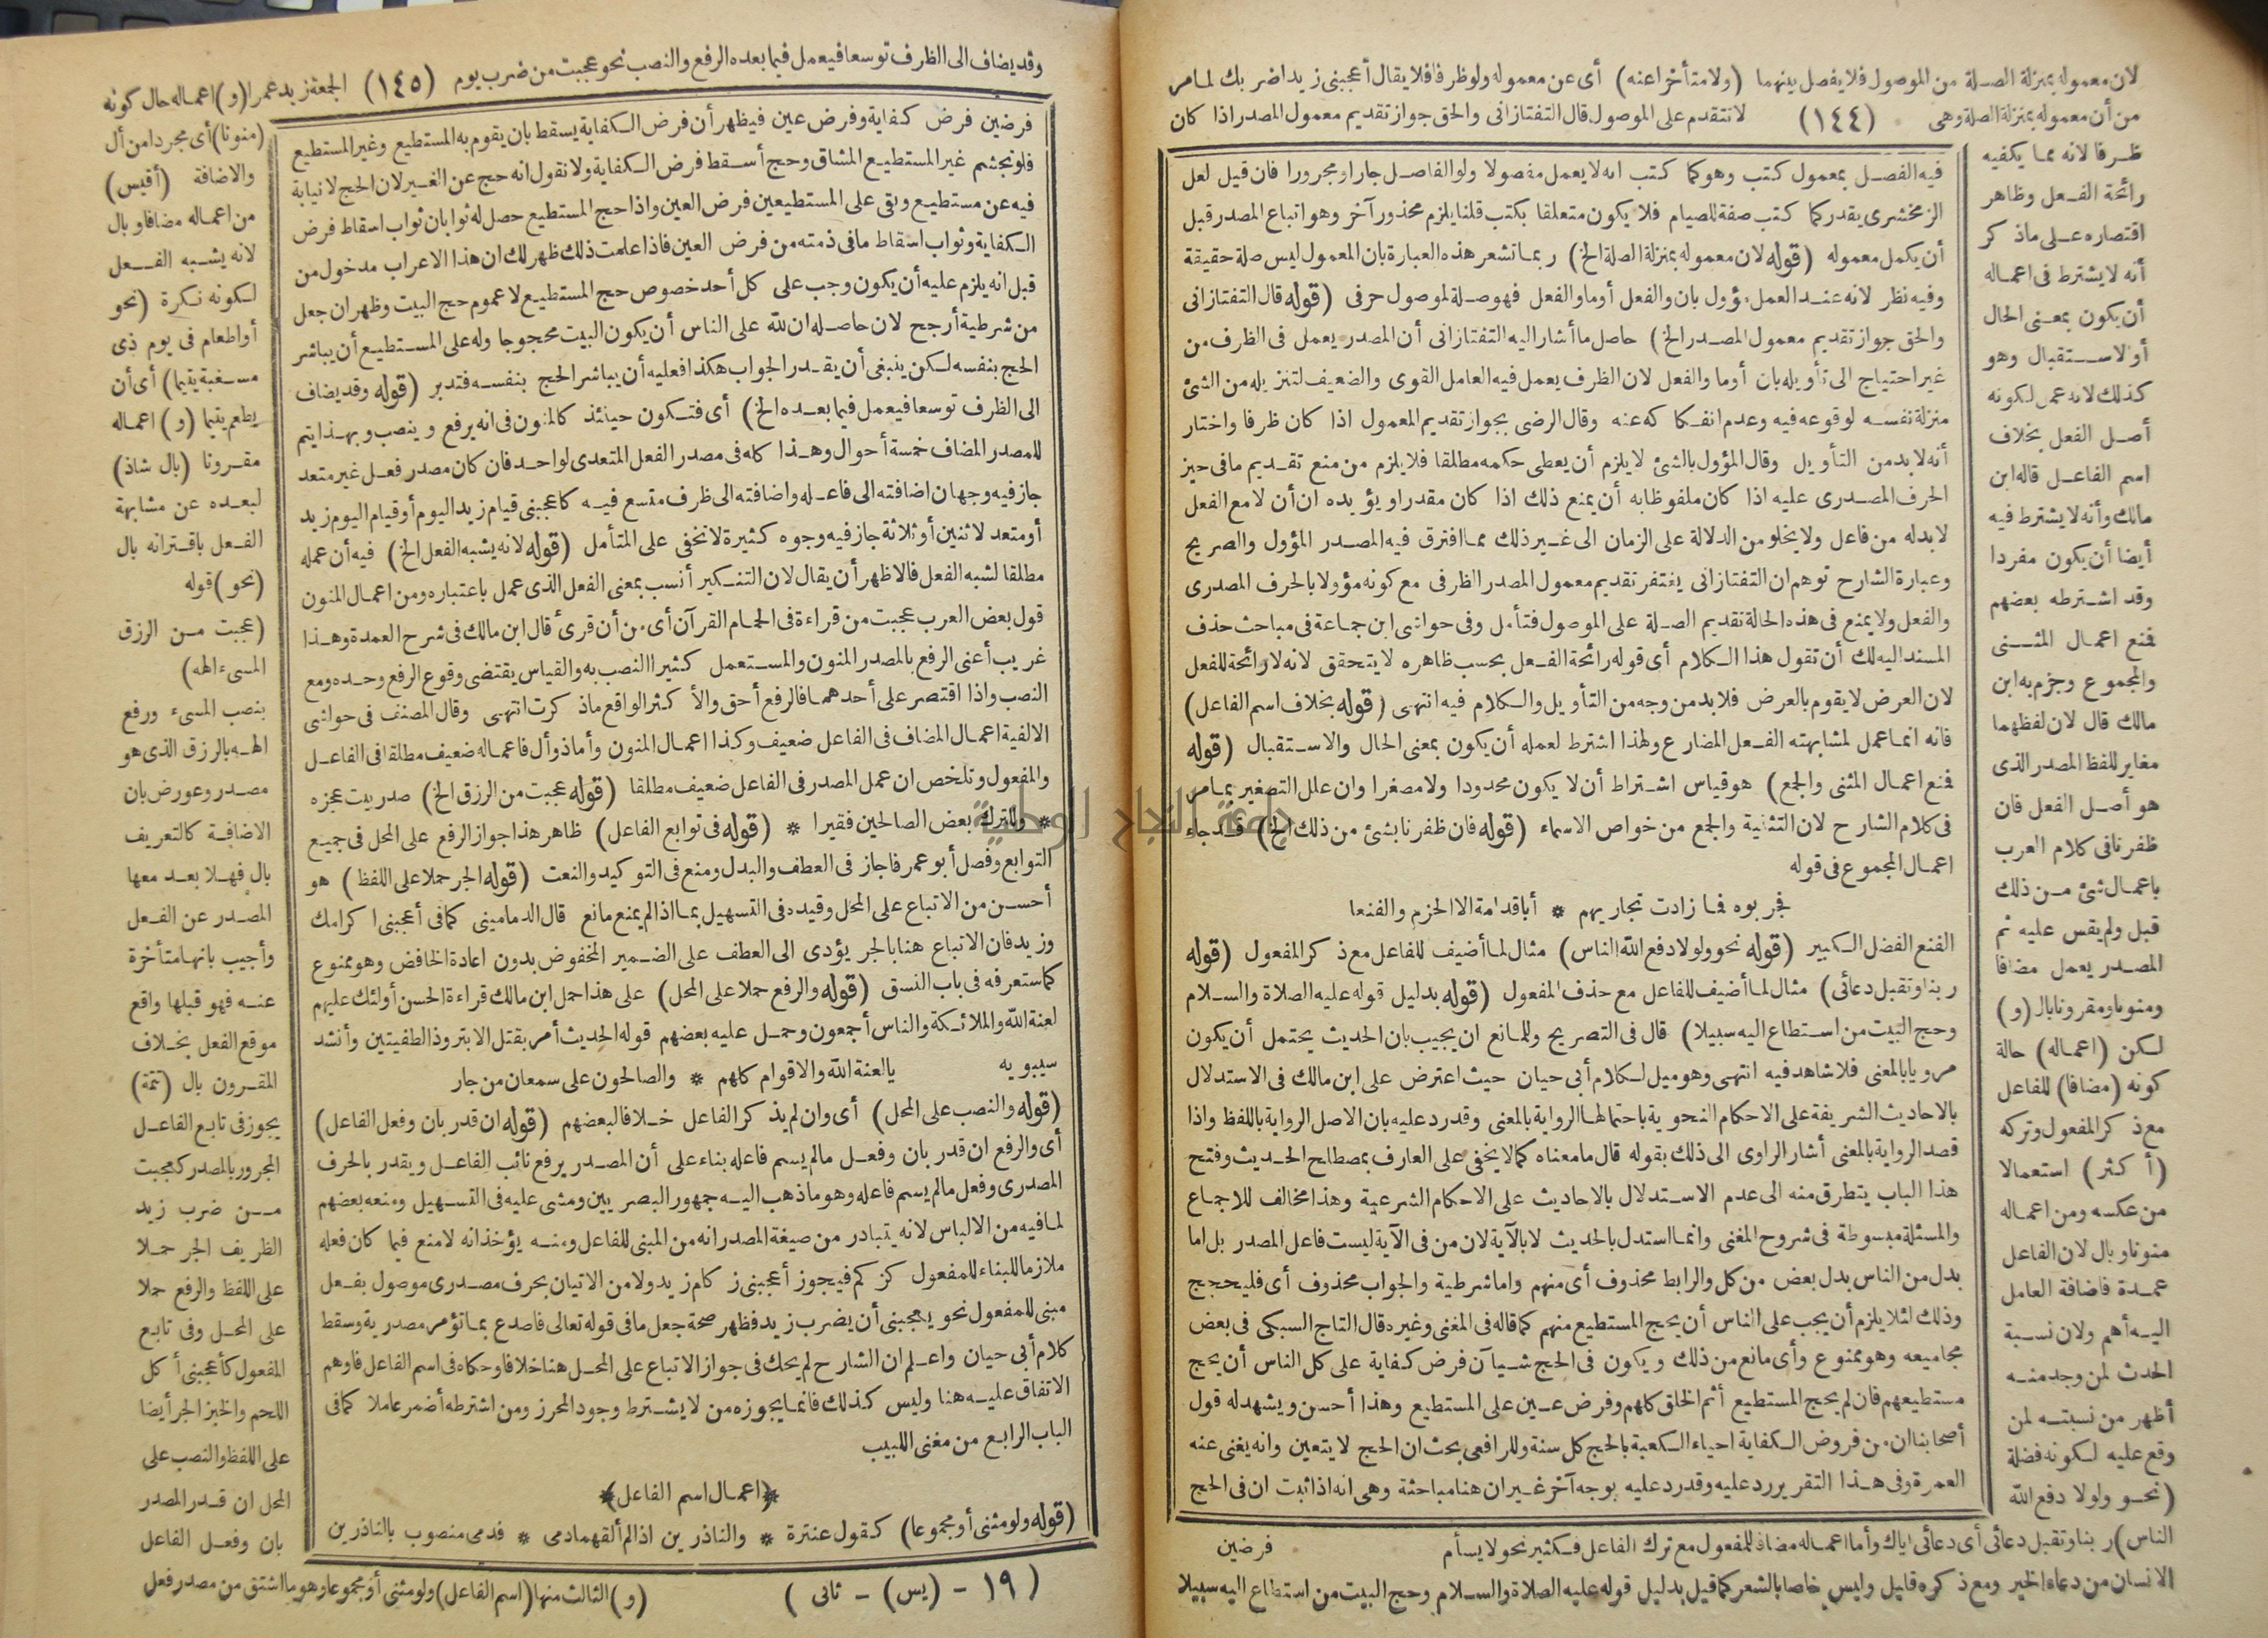 لان معموله بمنزلة الصلة من الموصول فلا يفصل بينهما (ولا متأخرا عنه) أى عن معموله ولو ظرفا فلا يقال أعجبنى زيدا ضربك لما مر
من أن معموله بمنزلة الصلة وهى (١٤٤) لا تتقدم على الموصول قال التفتازانى والحق جواز تقديم معمول المصدر اذا كان
ظرفا لانه مما يكفيه
رائحة الفعل وظاهر
اقتصاره على ماذكر
أنه لا يشترط فى اعماله
أن يكون بمعنى الحال
أو الاستقبال وهو
كذلك لانه عمل لكونه
أصل الفعل بخلاف
اسم الفاعل قاله ابن
مالك وأنه لا يشترط فيه
أيضا أن يكون مفردا
وقد اشترطه بعضهم
فمنع اعمال المثنى
والمجموع وجزم به ابن
مالك قال لان لفظهما
مغاير للفظ المصدر الذى
هو أصل الفعل فان
ظفرنا فى كلام العرب
باعمال شئ من ذلك
قبل ولم يقس عليه ثم
المصدر يعمل مضافا
ومنونا ومقرونا بال (و)
لكن (اعماله) حالة
كونه (مضافا) للفاعل
مع ذكر المفعول وتركه
(أكثر) استعمالا
من عكسه ومن اعماله
منونا وبال لان الفاعل
عمدة فاضافة العامل
اليه أهم ولان نسبة
الحدث لمن وجد منه
أظهر من نسبته لمن
وقع عليه لكونه فضلة
(نحو ولولا دفع الله
فيه الفصل بمعمول كتب وهو كما كتب انه لا يعمل مفصولا ولو الفاصل جارا ومجرورا فان قيل لعل
الزمخشرى يقدر كما كتب صفة للصيام فلا يكون متعلقا بكتب قلنا يلزم محذور آخر وهو اتباع المصدر قبل
أن يكمل معموله (قوله لان معموله بمنزلة الصلة الخ) ربما تشعر هذه العبارة بان المعمول ليس صلة حقيقة
وفيه نظر لانه عند العمل مؤول بان والفعل أو ما والفعل فهو صلة لموصول حرفى (قوله قال التفتازانى
والحق جواز تقديم معمول المصدر الخ) حاصل ما أشار اليه التفتازانى أن المصدر يعمل فى الظرف من
غير احتياج الى تأويله بان أو ما والفعل لان الظرف يعمل فيه العامل القوى والضعيف لتنزيله من الشئ
منزلة نفسه لوقوعه فيه وعدم انفكاكه عنه وقال الرضى بجواز تقديم المعمول اذا كان ظرفا واختار
أنه لابد من التأويل وقال المؤول بالشئ لا يلزم أن يعطى حكمه مطلقا فلا يلزم من منع تقديم ما فى حيز
الحرف المصدرى عليه اذا كان ملفوظا به أن يمنع ذلك اذا كان مقدرا ويؤيده ان أن لا مع الفعل
لابد له من فاعل ولا يخلو من الدلالة على الزمان الى غير ذلك مما افترق فيه المصدر المؤول والصريح
وعبارة الشارح توهم ان التفتازانى يغتفر تقديم معمول المصدر الظرفى مع كونه مؤولا بالحرف المصدرى
والفعل ولا يمنع فى هذه الحالة تقديم الصلة على الموصول فتأمل وفى حواشى ابن جماعة فى مباحث حذف
المسند اليه لك أن تقول هذا الكلام أى قوله رائحة الفعل بحسب ظاهره لا يتحقق لانه لا رائحة للفعل
لان العرض لا يقوم بالعرض فلابد من وجه من التأويل والكلام فيه انتهى (قوله بخلاف اسم الفاعل)
فانه انما عمل لمشابهته الفعل المضارع ولهذا اشترط لعمله أن يكون بمعنى الحال والاستقبال (قوله
فمنع اعمال المثنى والجمع) هو قياس اشتراط أن لا يكون محدودا ولا مصغرا وان علل التصغير بما مر
فى كلام الشارح لان التثنية والجمع من خواص الاسماء (قوله فان ظفرنا بشئ من ذلك الخ) قد جاء
اعمال المجموع فى قوله
فجربوه فما زادت تجاربهم * أبا قدامة الا الحزم والفنعا
الفنع الفضل الكبير (قوله نحو ولولا دفع الله الناس) مثال لما أضيف للفاعل مع ذكر المفعول (قوله
ربنا وتقبل دعائى) مثال لما أضيف للفاعل مع حذف المفعول (قوله بدليل قوله عليه الصلاة والسلام
وحج البيت من استطاع اليه سبيلا) قال فى التصريح وللمانع ان يجيب بان الحديث يحتمل أن يكون
مرويا بالمعنى فلا شاهد فيه انتهى وهو ميل لكلام أبى حيان حيث اعترض على ابن مالك فى الاستدلال
بالاحاديث الشريفة على الاحكام النحوية باحتمالها الرواية بالمعنى وقد رد عليه بان الاصل الرواية باللفظ واذا
قصد الرواية بالمعنى أشار الراوى الى ذلك بقوله قال ما معناه كما لا يخفى على العارف بمصطلح الحديث وفتح
هذا الباب يتطرق منه الى عدم الاستدلال بالاحاديث على الاحكام الشرعية وهذا مخالف للاجماع
والمسئلة مبسوطة فى شروح المغنى وانما استدل بالحديث لا بالآية لان من فى الآية ليست فاعل المصدر بل اما
بدل من الناس بدل بعض من كل والرابط محذوف أى منهم واما شرطية والجواب محذوف أى فليحجج
وذلك لئلا يلزم أن يجب على الناس أن يحج المستطيع منهم كما قاله فى المغنى وغيره قال التاج السبكى فى بعض
مجاميعه وهو ممنوع وأى مانع من ذلك ويكون فى الحج شيآن فرض كفاية على كل الناس أن يحج
مستطيعهم فان لم يحج المستطيع أثم الخلق كلهم وفرض عين على المستطيع وهذا أحسن ويشهد له قول
أصحابنا ان من فروض الكفاية احياء الكعبة بالحج كل سنة وللرافعى بحث ان الحج لا يتعين وانه يغنى عنه
العمرة وفى هذا التقرير رد عليه وقد رد عليه بوجه آخر غير ان هنا مباحثة وهى انه اذا ثبت ان فى الحج
الناس) ربنا وتقبل دعائى أى دعائى اياك وأما اعماله مضافا للمفعول مع ترك الفاعل فكثير نحو لا يسأم فرضين
الانسان من دعاء الخير ومع ذكره قليل وليس خاصا بالشعر كما قيل بدليل قوله عليه الصلاة والسلام وحج البيت من استطاع اليه سبيلا
وقد يضاف الى الظرف توسعا فيعمل فيما بعده الرفع والنصب نحو عجبت من ضرب يوم (١٤٥) الجمعة زيد عمرا (و) اعماله حال كونه
فرضين فرض كفاية وفرض عين فيظهر أن فرض الكفاية يسقط بان يقوم به المستطيع وغير المستطيع
فلو تجشم غير المستطيع المشاق وحج أسقط فرض الكفاية ولا نقول انه حج عن الغير لان الحج لا نيابة
فيه عن مستطيع وبقى على المستطيعين فرض العين واذا حج المستطيع حصل له ثوابان ثواب اسقاط فرض
الكفاية وثواب اسقاط ما فى ذمته من فرض العين فاذا علمت ذلك ظهر لك ان هذا الاعراب مدخول من
قبل انه يلزم عليه أن يكون وجب على كل أحد خصوص حج المستطيع لا عموم حج البيت وظهر ان جعل
من شرطية أرجح لان حاصله ان لله على الناس أن يكون البيت محجوجا وله على المستطيع أن يباشر
الحج بنفسه لكن ينبغى أن يقدر الجواب هكذا فعليه أن يباشر الحج بنفسه فتدبر (قوله وقد يضاف
الى الظرف توسعا فيعمل فيما بعده الخ) أى فتكون حينئذ كالمنون فى انه يرفع وينصب وبهذا يتم
للمصدر المضاف خمسة أحوال وهذا كله فى مصدر الفعل المتعدى لواحد فان كان مصدر فعل غير متعد
جاز فيه وجهان اضافته الى فاعله واضافته الى ظرف متسع فيه كاعجبنى قيام زيد اليوم أو قيام اليوم زيد
أو متعد لاثنين أو ثلاثة جاز فيه وجوه كثيرة لا تخفى على المتأمل (قوله لانه يشبه الفعل الخ) فيه أن عمله
مطلقا لشبه الفعل فالاظهر أن يقال لان التنكير أنسب بمعنى الفعل الذى عمل باعتباره ومن اعمال المنون
قول بعض العرب عجبت من قراءة فى الحمام القرآن أى من أن قرئ قال ابن مالك فى شرح العمدة وهذا
غريب أعنى الرفع بالمصدر المنون والمستعمل كثيرا النصب به والقياس يقتضى وقوع الرفع وحده ومع
النصب واذا اقتصر على أحدهما فالرفع أحق والأكثر الواقع ما ذكرت انتهى وقال المصنف فى حواشى
الالفية اعمال المضاف فى الفاعل ضعيف وكذا اعمال المنون وأما ذو أل فاعماله ضعيف مطلقا فى الفاعل
والمفعول وتلخص ان عمل المصدر فى الفاعل ضعيف مطلقا (قوله عجبت من الرزق الخ) صدر بيت عجزه
* وللترك بعض الصالحين فقيرا * (قوله فى توابع الفاعل) ظاهر هذا جواز الرفع على المحل فى جميع
التوابع وفصل أبو عمر فاجاز فى العطف والبدل ومنع فى التوكيد والنعت (قوله الجر حملا على اللفظ) هو
أحسن من الاتباع على المحل وقيده فى التسهيل بما اذا لم يمنع مانع قال الدمامينى كما فى أعجبنى اكرامك
وزيد فان الاتباع هنا بالجر يؤدى الى العطف على الضمير المخفوض بدون اعادة الخافض وهو ممنوع
كما ستعرفه فى باب النسق (قوله والرفع حملا على المحل) على هذا حمل ابن مالك قراءة الحسن أولئك عليهم
لعنة الله والملائكة والناس أجمعون وحمل عليه بعضهم قوله الحديث أمر بقتل الابتر وذا الطفيتين وأنشد
سيبويه يا لعنة الله والاقوام كلهم * والصالحون على سمعان من جار
(قوله والنصب على المحل) أى وان لم يذكر الفاعل خلافا لبعضهم (قوله ان قدر بان وفعل الفاعل)
أى والرفع ان قدر بان وفعل ما لم يسم فاعله بناء على أن المصدر يرفع نائب الفاعل ويقدر بالحرف
المصدرى وفعل ما لم يسم فاعله وهو ما ذهب اليه جمهور البصريين ومشى عليه فى التسهيل ومنعه بعضهم
لما فيه من الالباس لانه يتبادر من صيغة المصدر انه من المبنى للفاعل ومنه يؤخذ انه لا منع فيما كان فعله
ملازما للبناء للمفعول كزكم فيجوز أعجبنى زكام زيد ولا من الاتيان بحرف مصدرى موصول بفعل
مبنى للمفعول نحو يعجبنى أن يضرب زيد فظهر صحة جعل ما فى قوله تعالى فاصدع بما تؤمر مصدرية وسقط
كلام أبى حيان واعلم ان الشارح لم يحك فى جواز الاتباع على المحل هنا خلافا وحكاه فى اسم الفاعل فاوهم
الاتفاق عليه هنا وليس كذلك فانما يجوزه من لا يشترط وجود المحرز ومن اشترطه أضمر عاملا كما فى
الباب الرابع من مغنى اللبيب
﴿اعمال اسم الفاعل﴾
(قوله ولو مثنى أو مجموعا) كقول عنترة * والناذرين اذا لم ألقهما دمى * فدمى منصوب بالناذرين
(منونا) أى مجردا من أل
والاضافة (أقيس)
من اعماله مضافا وبال
لانه يشبه الفعل
لكونه نكرة (نحو
أو اطعام فى يوم ذى
مسغبة يتيما) أى أن
يطعم يتيما (و) اعماله
مقرونا (بال شاذ)
لبعده عن مشابهة
الفعل باقترانه بال
(نحو) قوله
(عجبت من الرزق
المسىء الهه)
بنصب المسىء ورفع
الهه بالرزق الذى هو
مصدر وعورض بان
الاضافة كالتعريف
بال فهلا بعد معها
المصدر عن الفعل
وأجيب بانها متأخرة
عنه فهو قبلها واقع
موقع الفعل بخلاف
المقرون بال (تتمة)
يجوز فى تابع الفاعل
المجرور بالمصدر كعجبت
من ضرب زيد
الظريف الجر حملا
على اللفظ والرفع حملا
على المحل وفى تابع
المفعول كأعجبنى أكل
اللحم والخبز الجر أيضا
على اللفظ والنصب على
المحل ان قدر المصدر
بان وفعل الفاعل
(و) الثالث منها (اسم الفاعل) ولو مثنى أو مجموعا وهو ما اشتق من مصدر فعل
(١٩ - (يس) - ثانى)
جامعة النجاح الوطنية